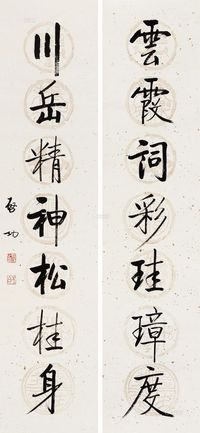 雲霞詞彩珪璋度
川岳精神松桂身
啓功